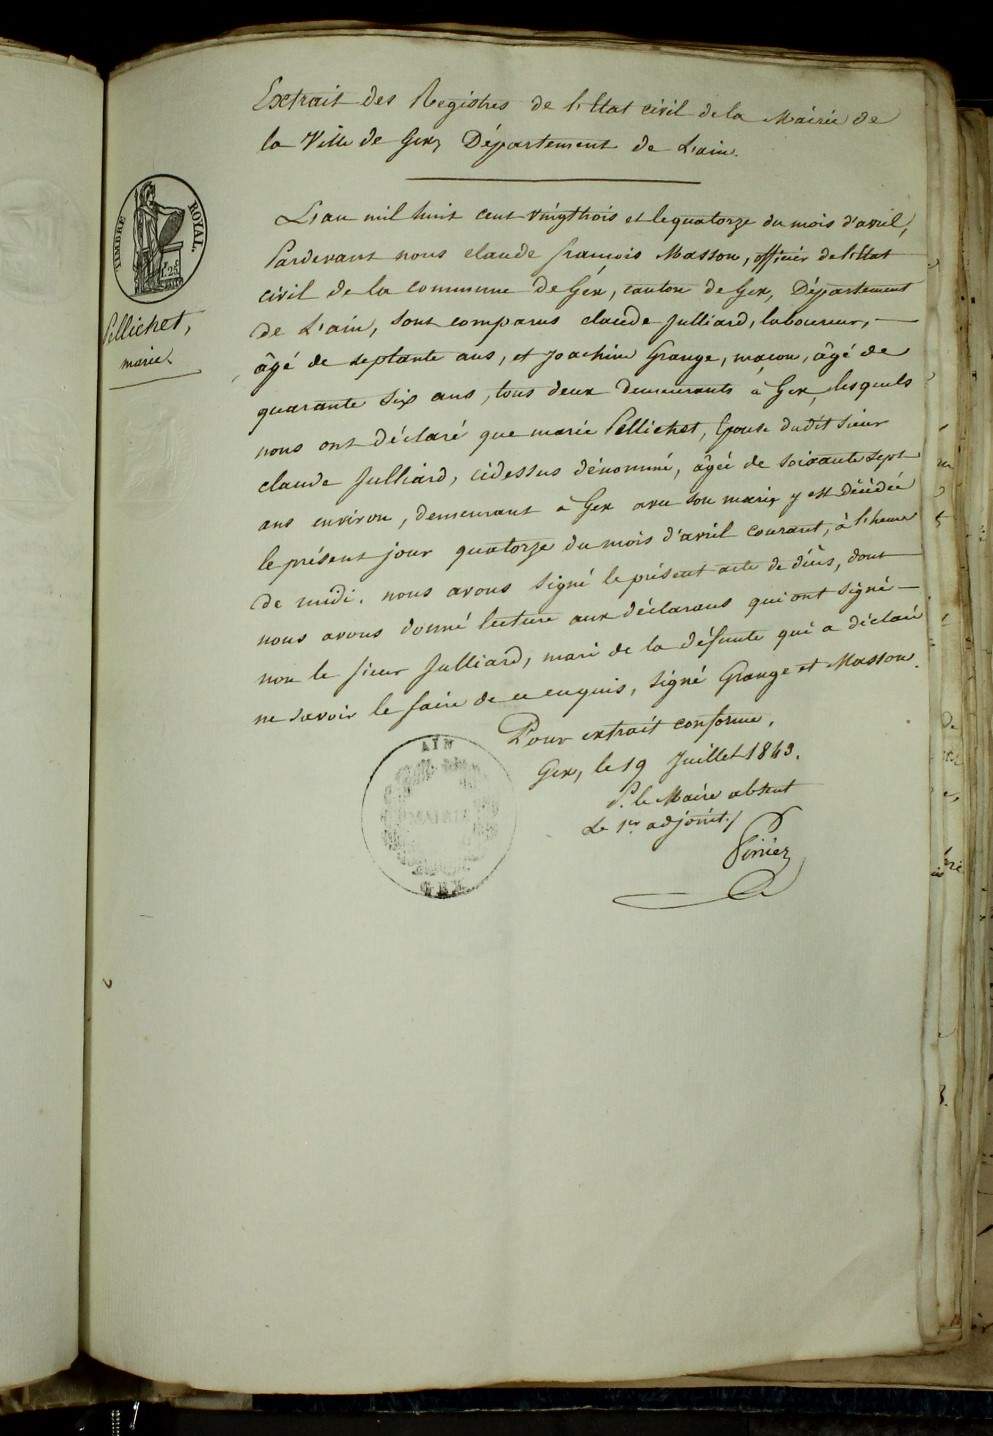 Extrait des Registres de l'Etat civil de la Mairie de
la Ville de Gex, Département de L'ain.
TIMBRE ROYAL.
Pellichet,
marie.
L'an mil huit cent vingt trois et le quatorze du mois d'avril,
Pardevant nous claude françois Masson, officier de l'Etat
civil de la commune de Gex, canton de Gex, Département
de L'ain, sont comparus claude Julliard, laboureur,
âgé de septante ans, et Joachim Grange, maçon, âgé de
quarante six ans, tous deux demeurants à Gex, lesquels
nous ont déclaré que marie Pellichet, Epouse dudit sieur
claude Julliard, cidessus dénommé, âgée de soixante sept
ans environ, demeurant à Gex avec son mari, y est décédée
le présent jour quatorze du mois d'avril courant, à l'heure
de midi. nous avons signé le présent acte de décès, dont
nous avons donné lecture aux déclarans qui ont signé
non le sieur Julliard, mari de la défunte qui a déclaré
ne savoir le faire de ce enquis, signé Grange et Masson.
Pour extrait conforme,
Gex, le 19 Juillet 1843.
P. le Maire absent
Le 1er adjoint,
AIN
MAIRIE
GEX